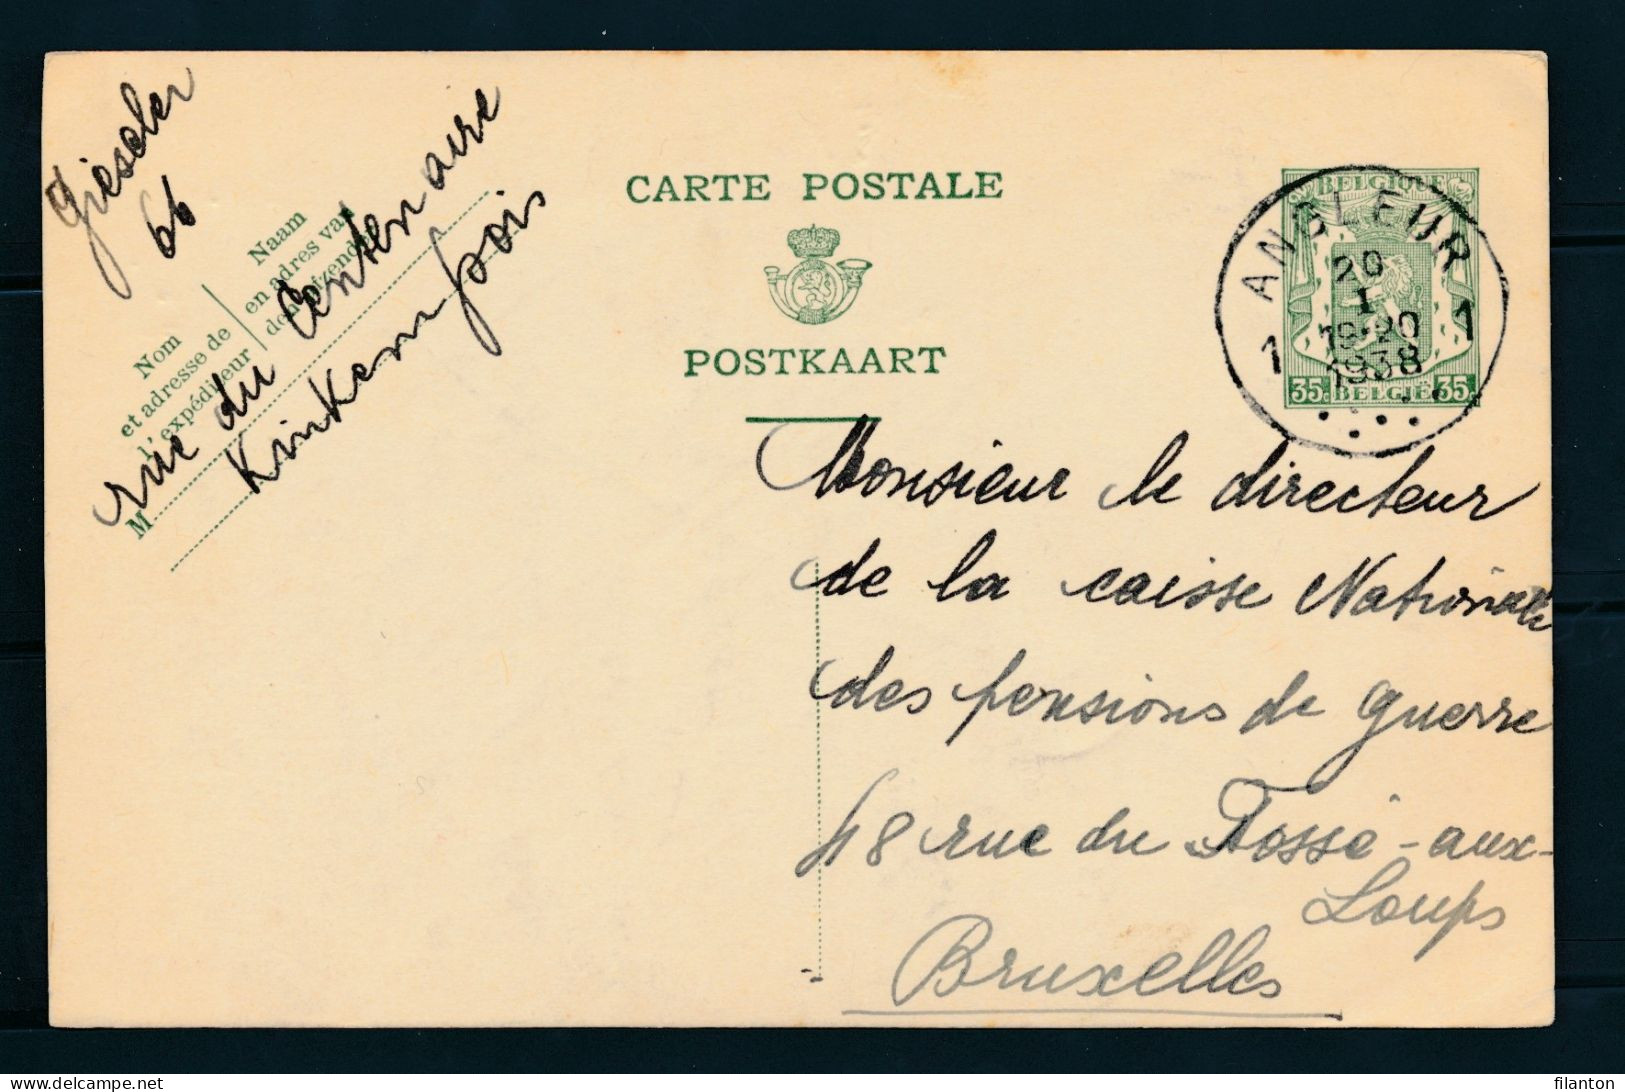 Giescher
66
rue du Centenaire
Kinkempois
Nom
et adresse de
l'expéditeur
Naam
en adres van
den afzender
M
CARTE POSTALE
POSTKAART
BELGIQUE
35c BELGIË 35c
ANGLEUR
20
I
19-20
1938
1 1
Monsieur le directeur
de la caisse Nationale
des pensions de guerre
48 rue du Fossé-aux-
Loups
Bruxelles
delcampe.net
filanton